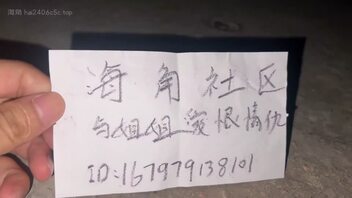 海角 hai2406c5c.top
海角社区
与姐姐爱恨情仇
ID:167979138101